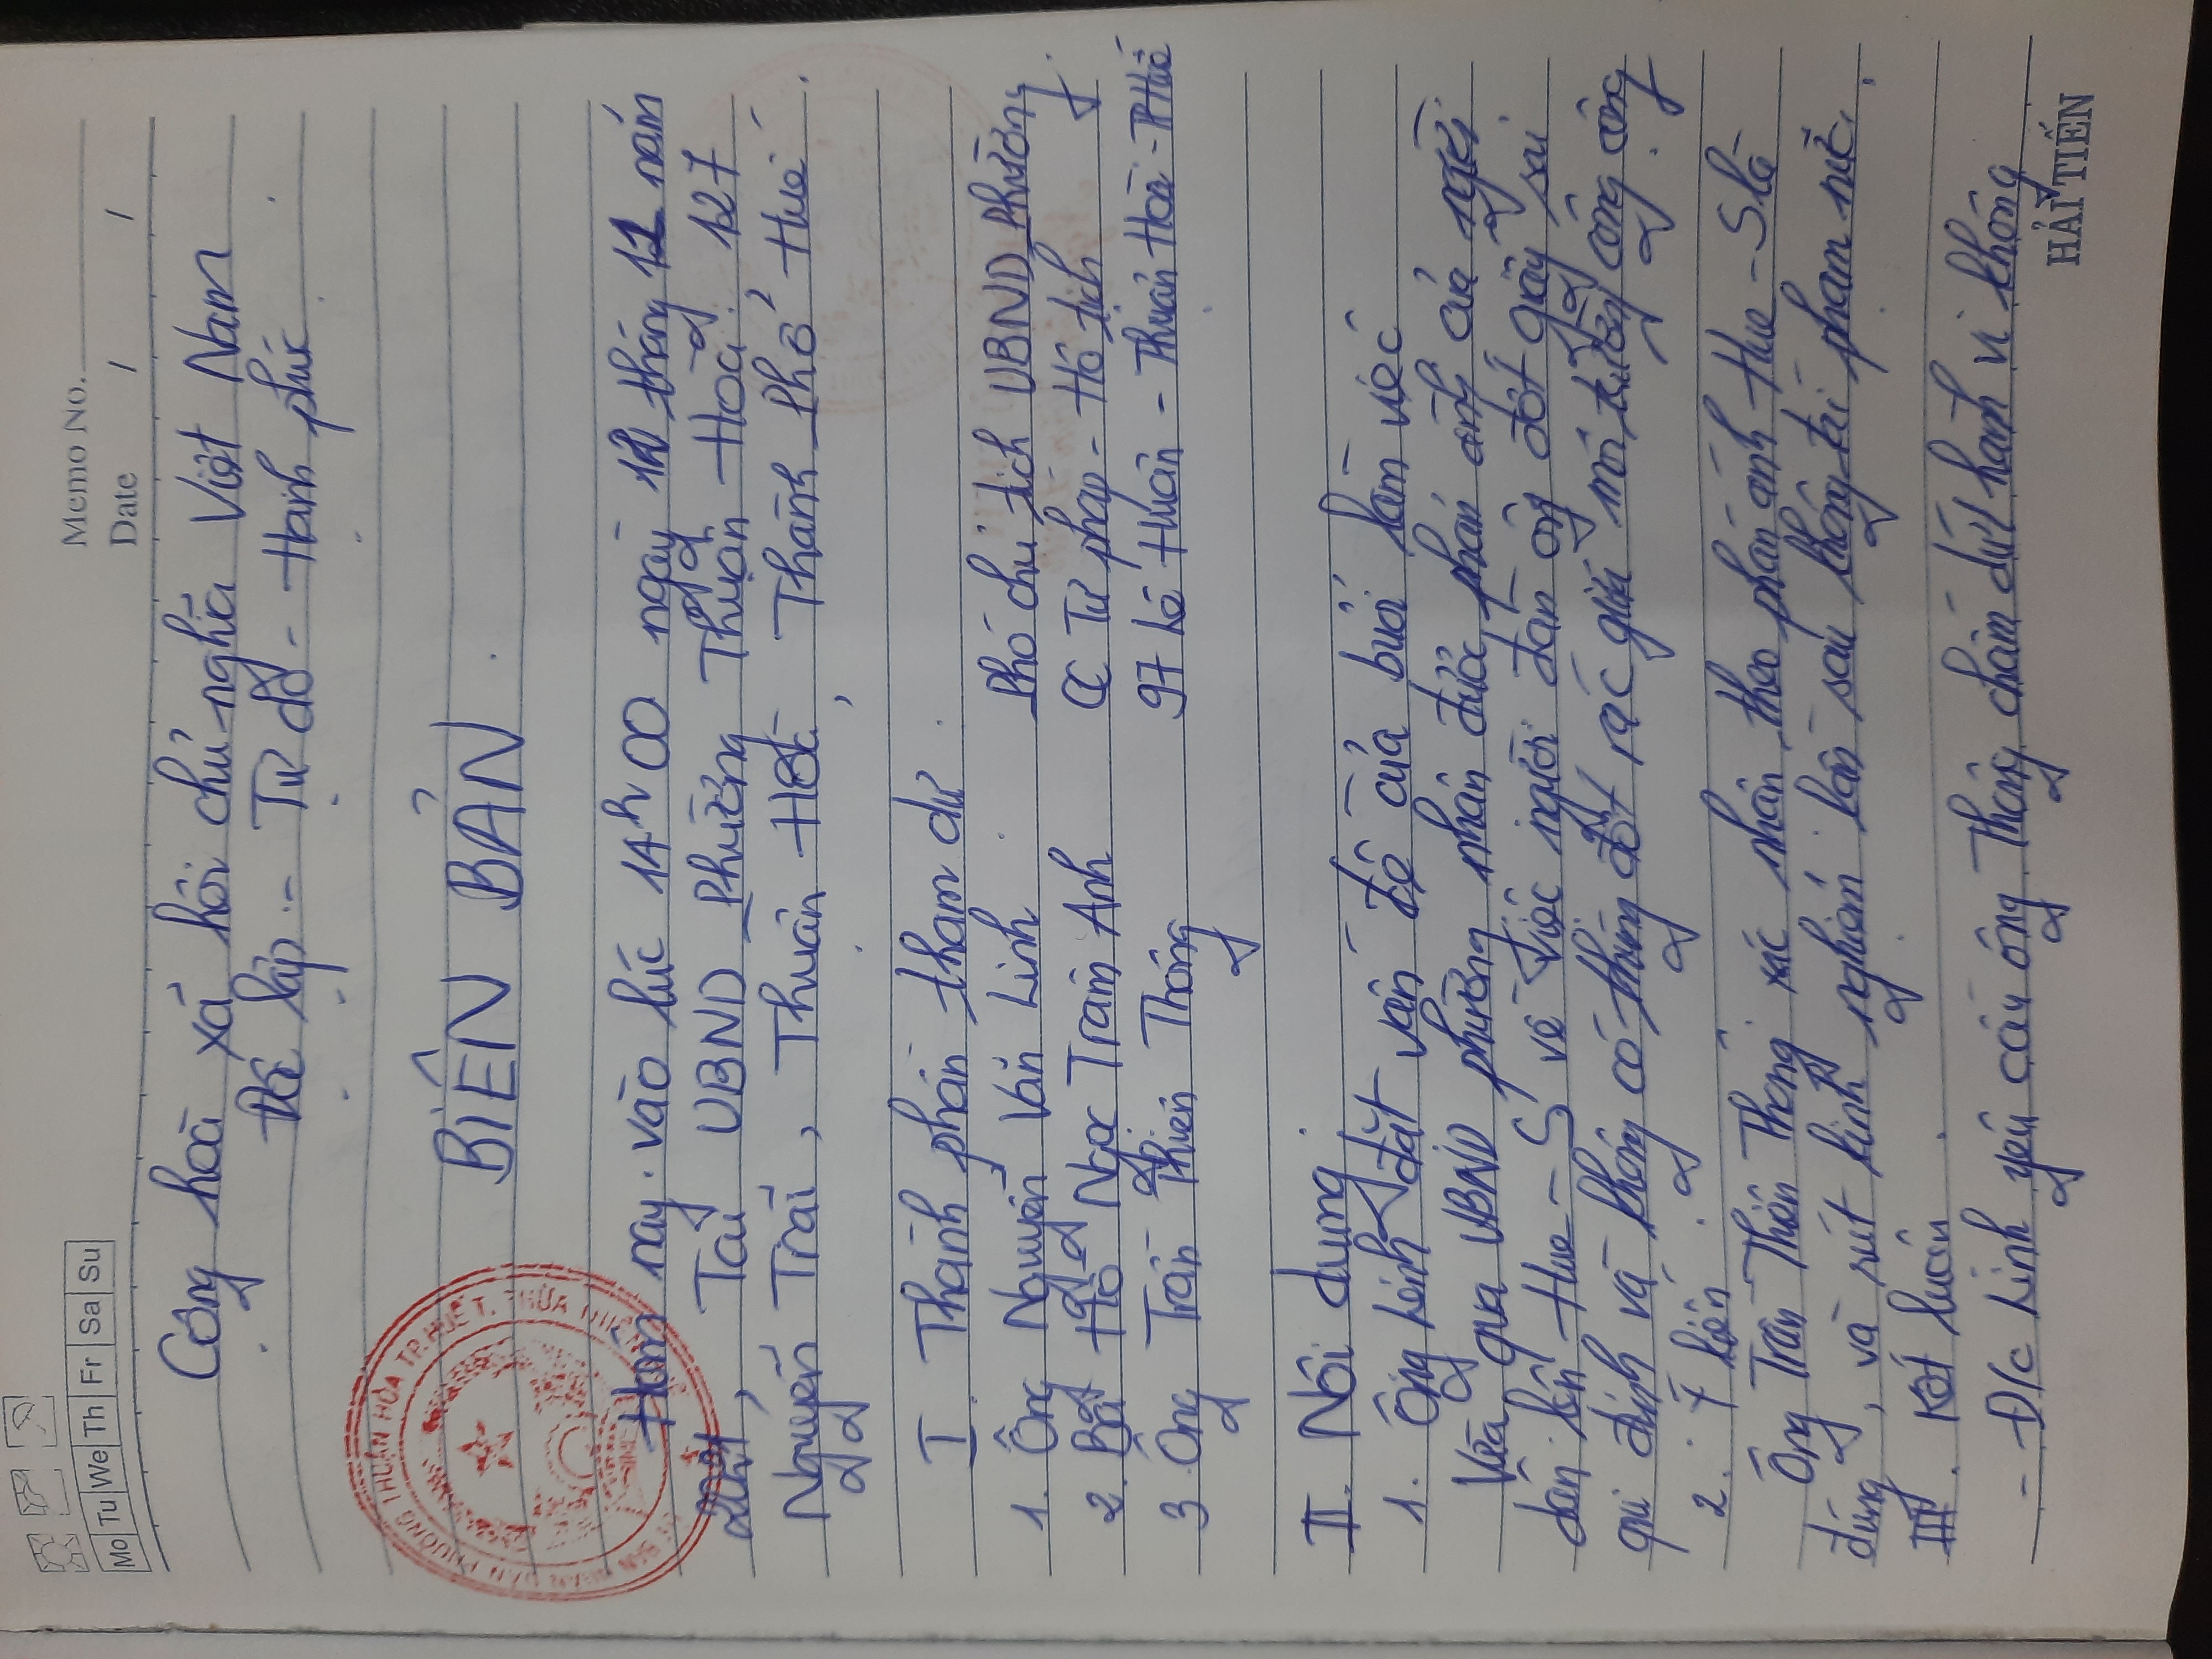 Memo No.
Mo Tu We Th Fr Sa Su
Date / /
Cộng hoà xã hội chủ nghĩa Việt Nam
Độc lập - Tự do - Hạnh phúc
BIÊN BẢN
Hôm nay vào lúc 14h00 ngày 12 tháng 11 năm
Tại UBND Phường Thuận Hoà. 127
Nguyễn Trãi, Thuận Hoà, Thành Phố Huế
I. Thành phần tham dự.
1. Ông Nguyễn Văn Linh Phó chủ tịch UBND Phường
2. Bà Hồ Ngọc Trâm Anh CC Tư pháp - Hộ tịch
3 Ông Trần Thiên Thông 97 Lê Huân - Thuận Hoà - P Huế
II. Nội dung.
1. Ông Linh đặt vấn đề của buổi làm việc
Vừa qua UBND phường nhận được phản ánh của người
dân lên Hue-S về việc người đàn ông đốt giấy sai
qui định và không có thùng đốt rác giữa môi trường công cộng
2. Ý kiến
Ông Trần Thiên Thông xác nhận theo phản ánh Hue-S là
đúng, và rút kinh nghiệm lần sau không tái phạm nữa.
III. Kết luận
- Đ/c Linh yêu cầu ông Thông chấm dứt hành vi không
HẢI TIẾN
ỦY BAN NHÂN DÂN PHƯỜNG THUẬN HÒA TP.HUẾ T. THỪA THIÊN HUẾ